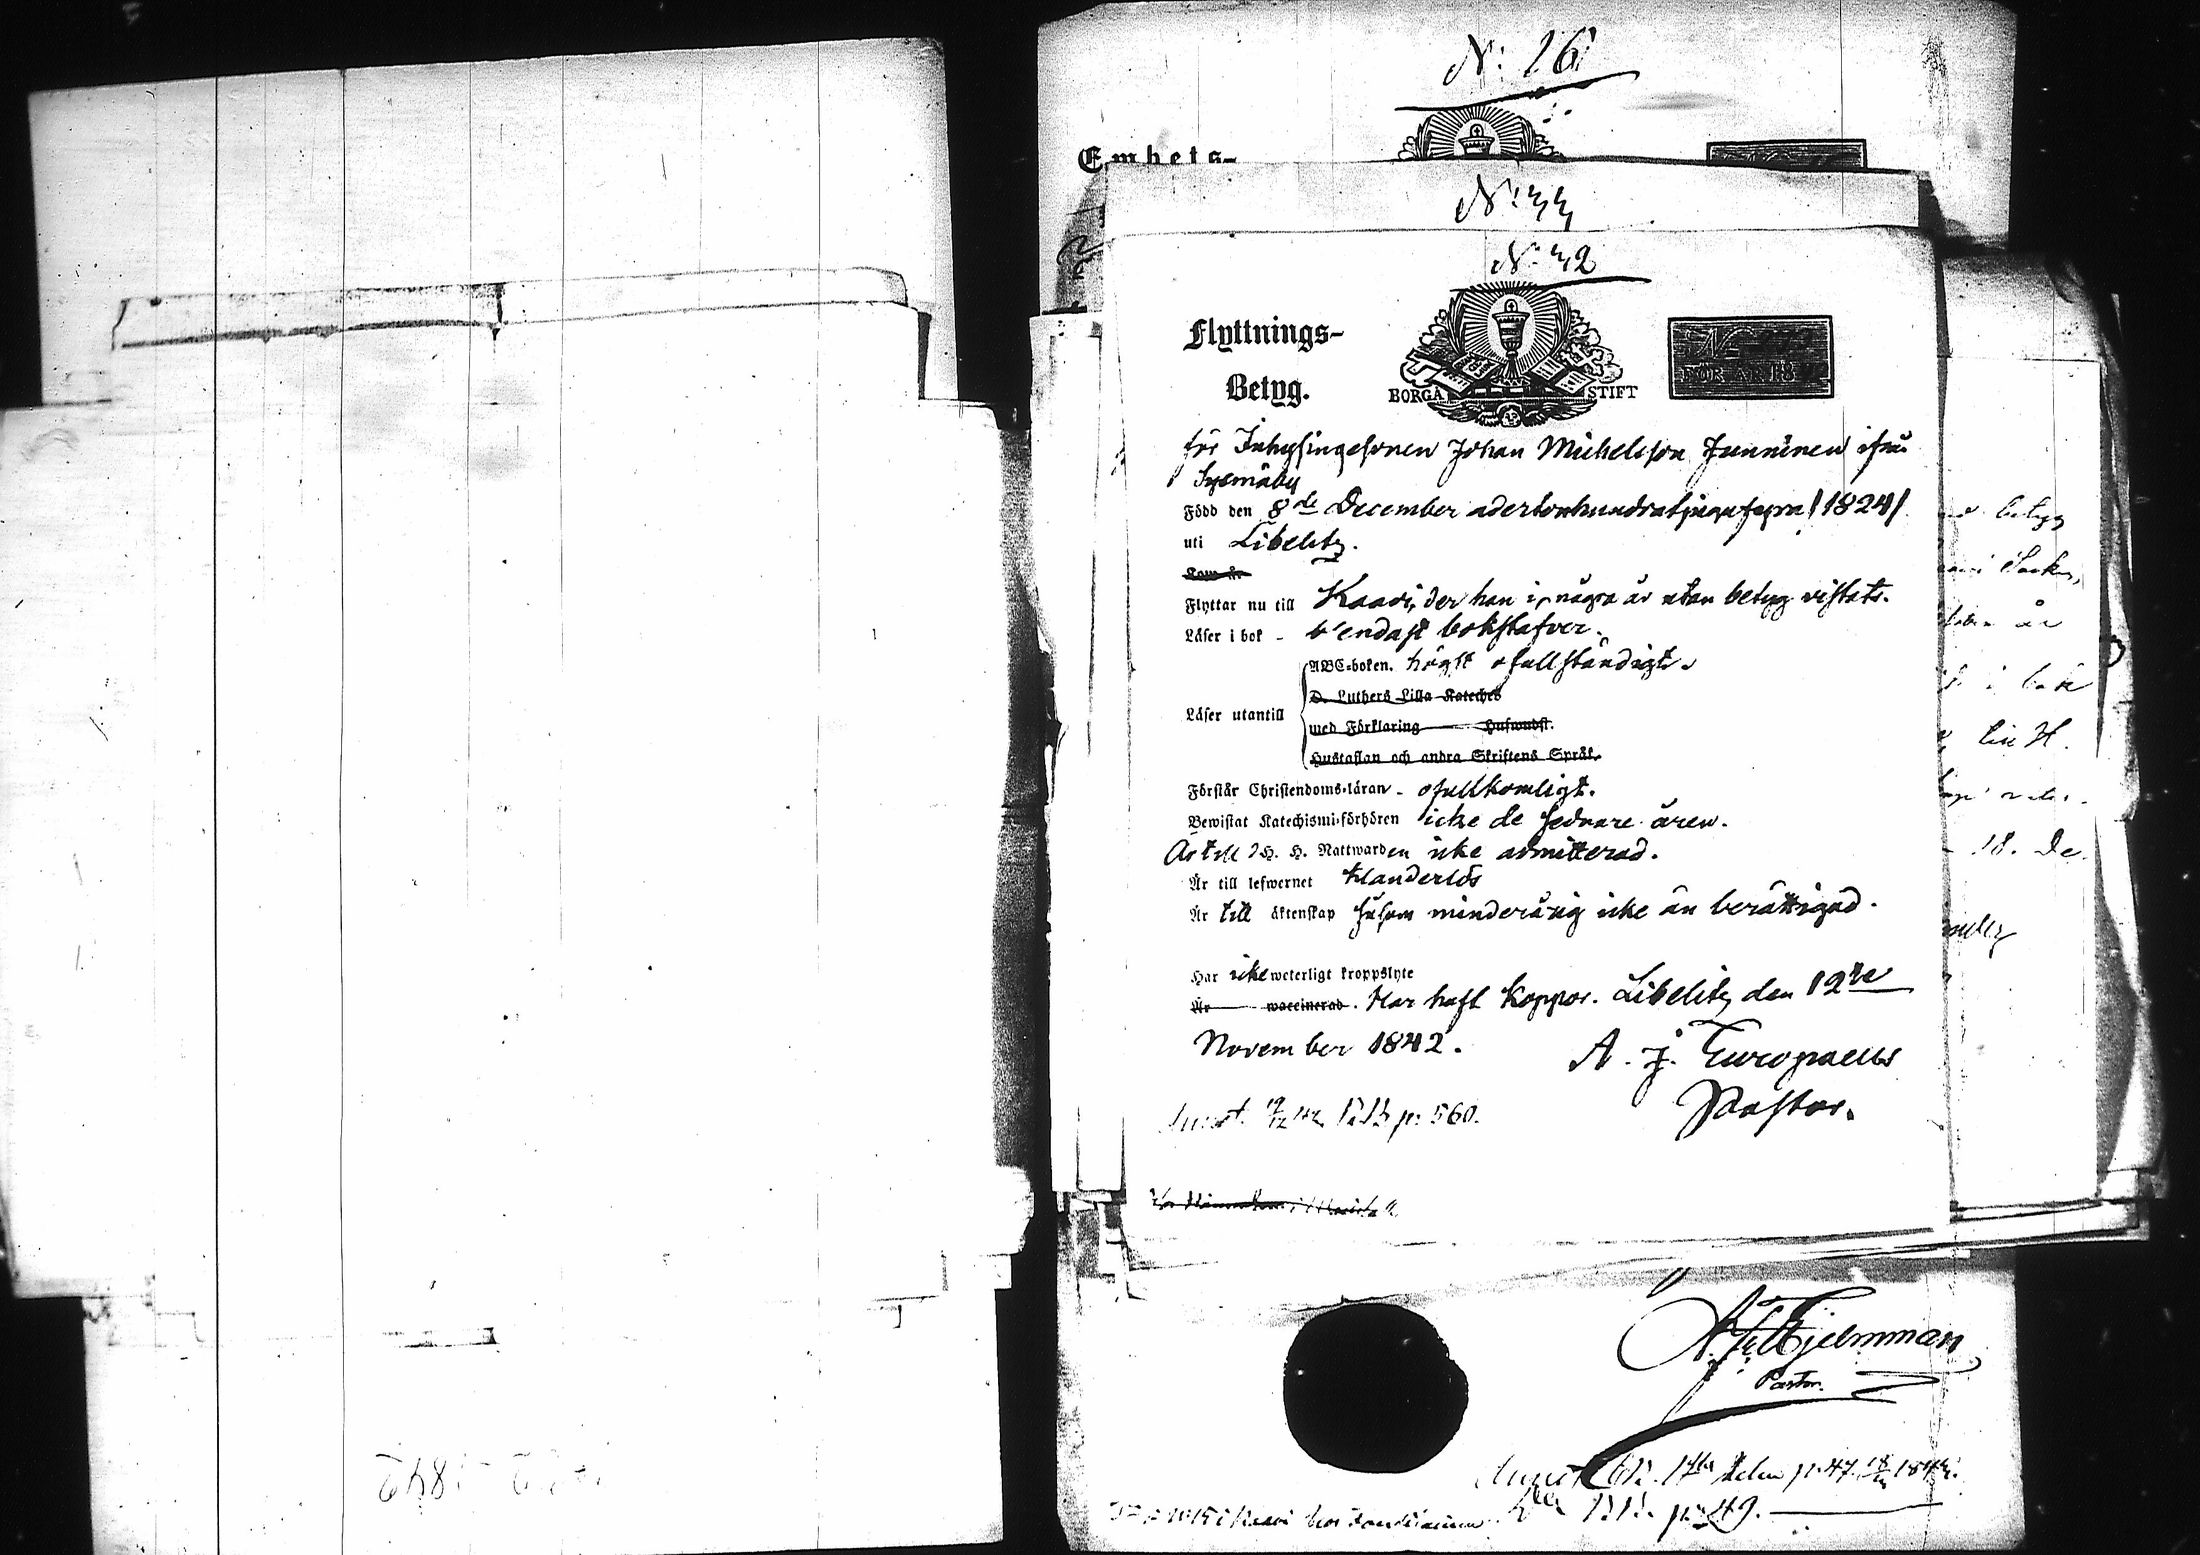 N: 26
Embets-
N: 33
N: 32
Flyttnings-
Betyg.
BORGÅ STIFT
N
FÖR ÅR 18
för Inhysingesonen Johan Michelsson Junninen ifrån
Sysmäby
Född den 8de December adertonhundratjugufyra /1824/
uti Libelitz.
Kom år
Flyttar nu till Kaavi, der han i några år utan betyg vistats.
Läser i bok - endast bokstafver.
ABC-boken. högst ofullständigt.
D. Luthers Lilla Kateches
Läser utantill
med Förklaring
Hustaflan och andra Skriftens Språk.
Förstår Christendoms-läran - ofullkomligt.
Bewistat Katechismi-förhören icke de sednare åren.
Är till H. H. Nattwarden icke admitterad.
Är till lefwernet klanderlös
Är till äktenskap såsom minderårig icke än berättigad.
Har icke weterligt kroppslyte
Är waccinerad. Har haft koppor. Libelitz den 12te
November 1842.
A. J. Europaeus
Pastor.
p: 560.
betyg
18. De
Hjelmman
Pastor.
p. 47. 18
p: 49.
1842